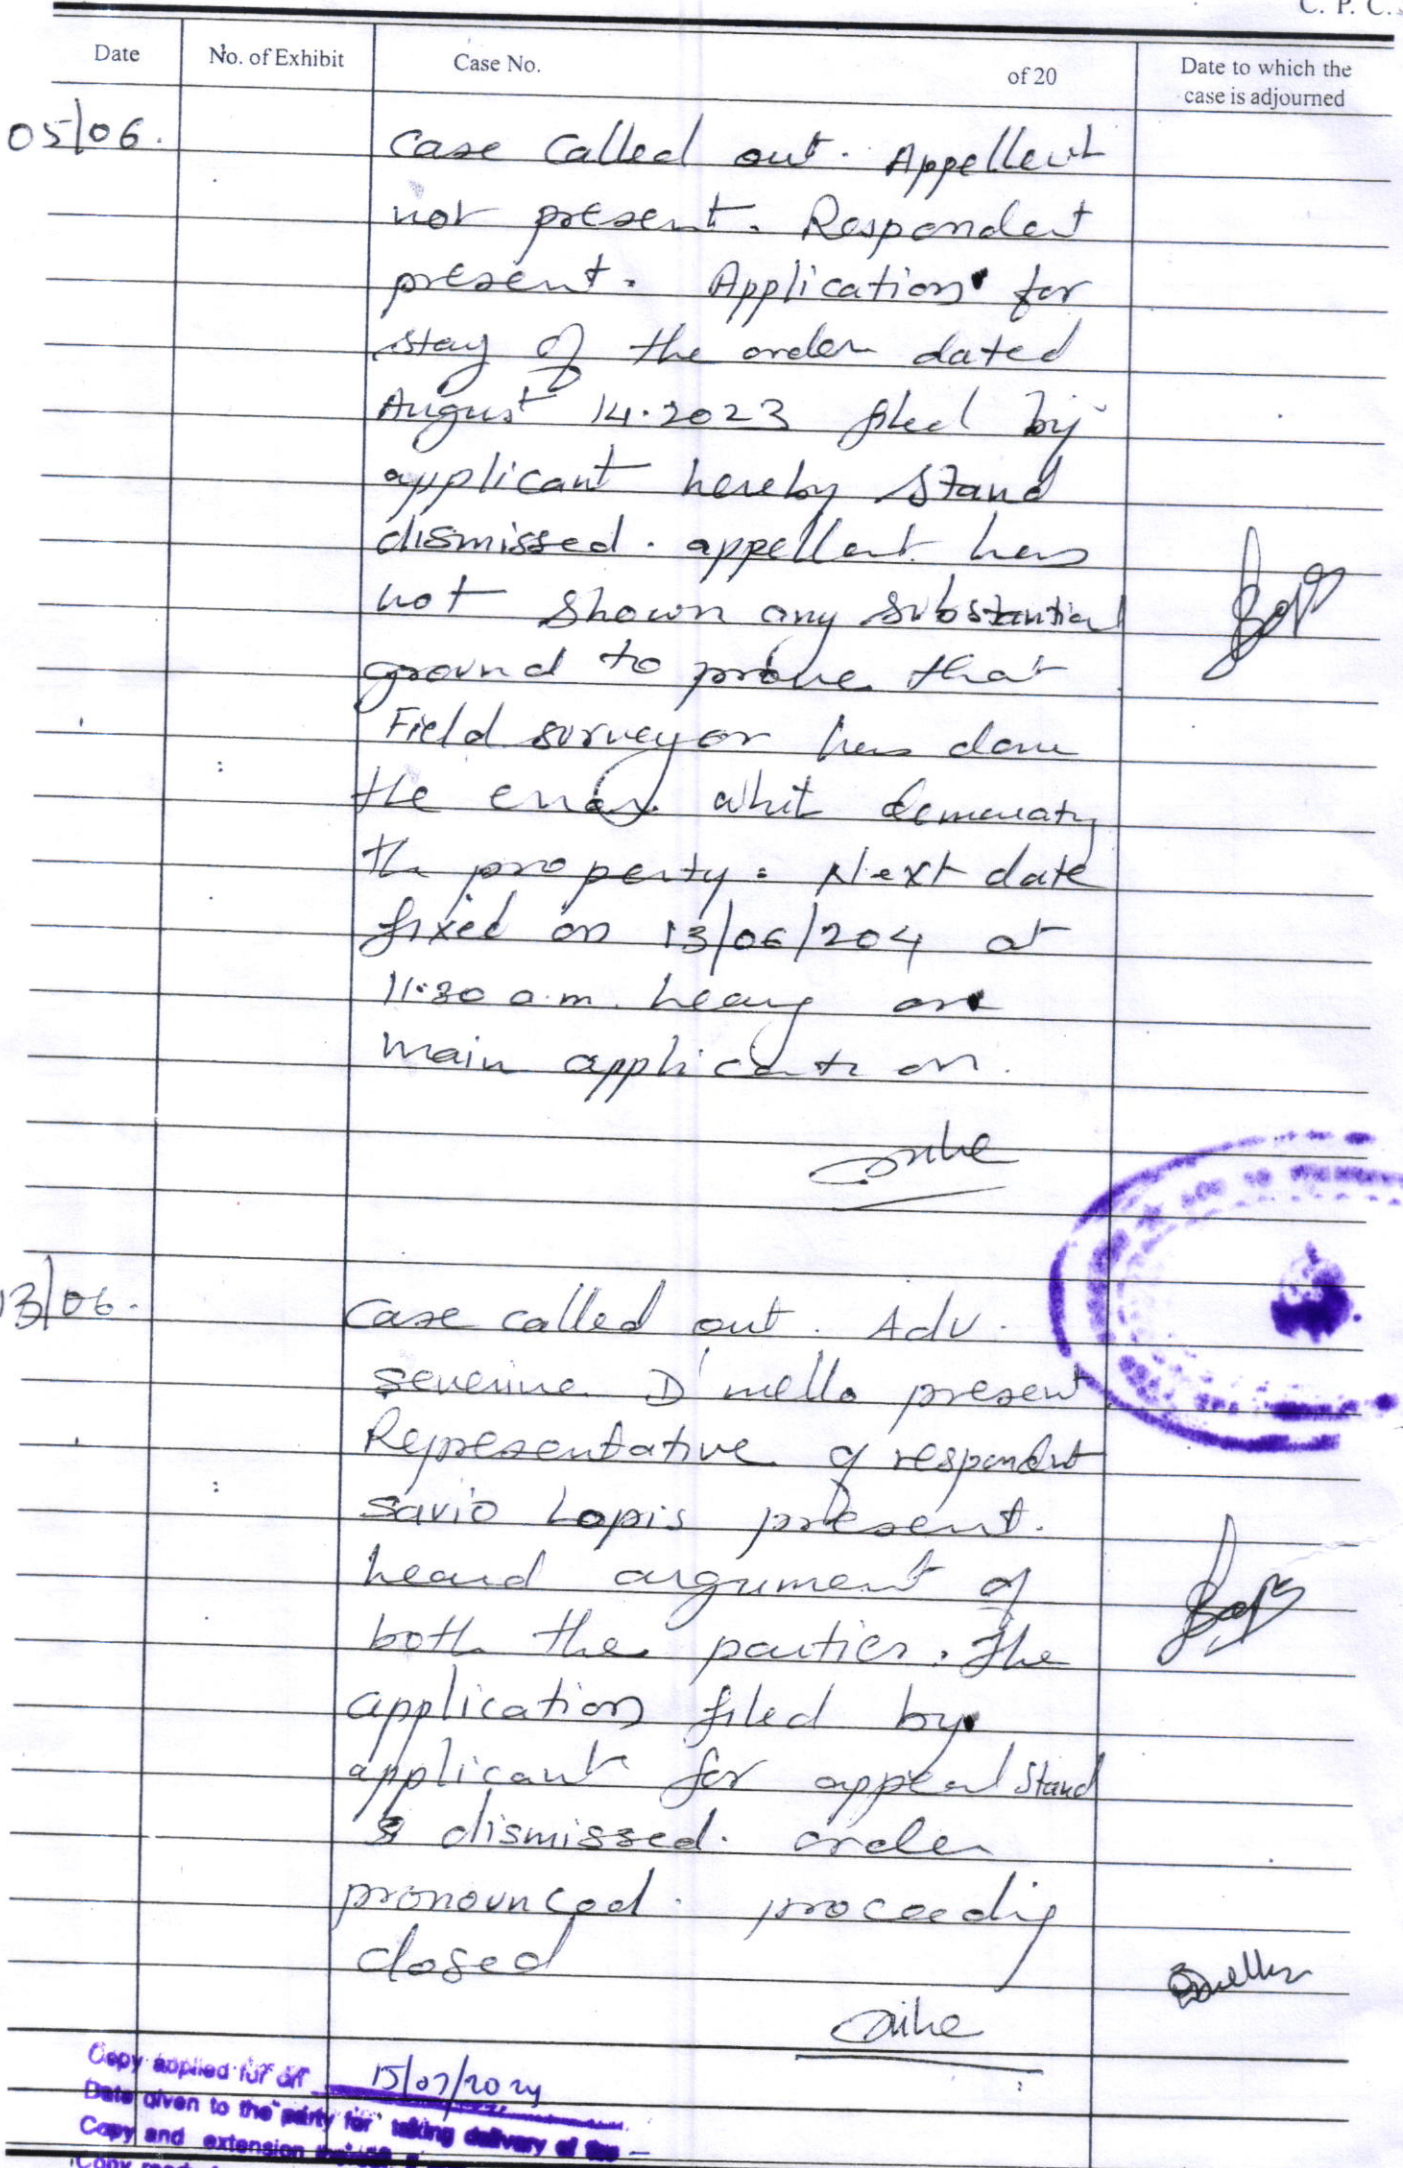 C. P. C.
Date No. of Exhibit Case No. of 20 Date to which the
case is adjourned
05/06. Case called out. Appellent
not present. Respondent
present. Application for
stay of the order dated
August 14.2023 filed by
applicant hereby stand
dismissed. appellent has
not shown any substantial
ground to prove that
Field surveyor has done
the error whil demarcatig
the property. Next date
fixed on 13/06/204 at
11.30 a.m. hearig on
main application.
13/06. Case called out. Adv.
Severine D'mello present
Representative of respondent
Savio Lopis present.
heard argument of
both the parties. The
application filed by
applicant for appeal stand
dismissed. order
pronounced. proceedig
closed
Dmello
Copy applied for on 15/07/2024
Date given to the party for taking delivery of the
Copy and extension
Copy